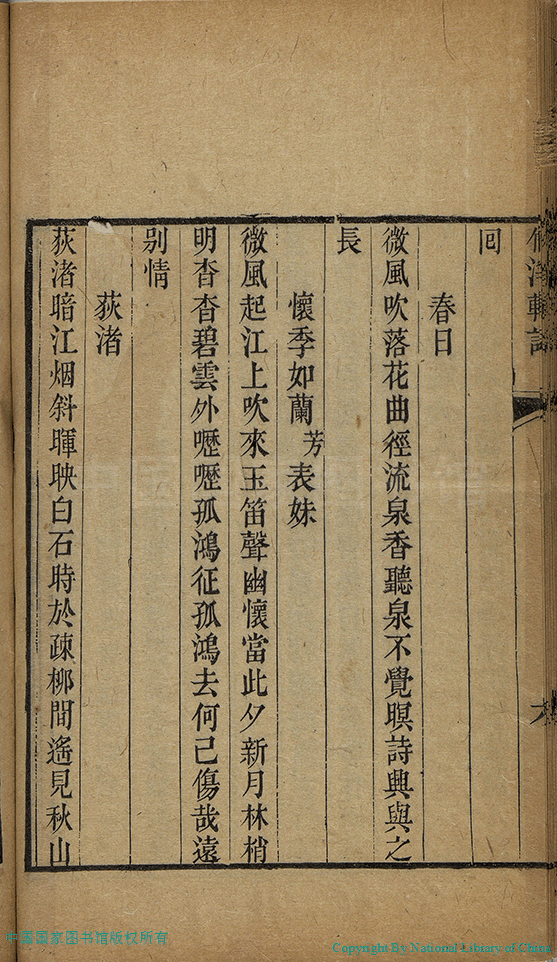 回
春日
微風吹落花曲徑流泉香聽泉不覺暝詩興與之
長
懷季如蘭芳表妹
微風起江上吹來玉笛聲幽懷當此夕新月林梢
明杳杳碧雲外嚦嚦孤鴻征孤鴻去何已傷哉遠
别情
荻渚
荻渚暗江烟斜暉映白石時於疎栁間遙見秋山
中国国家图书馆版权所有
Copyright By National Library of China